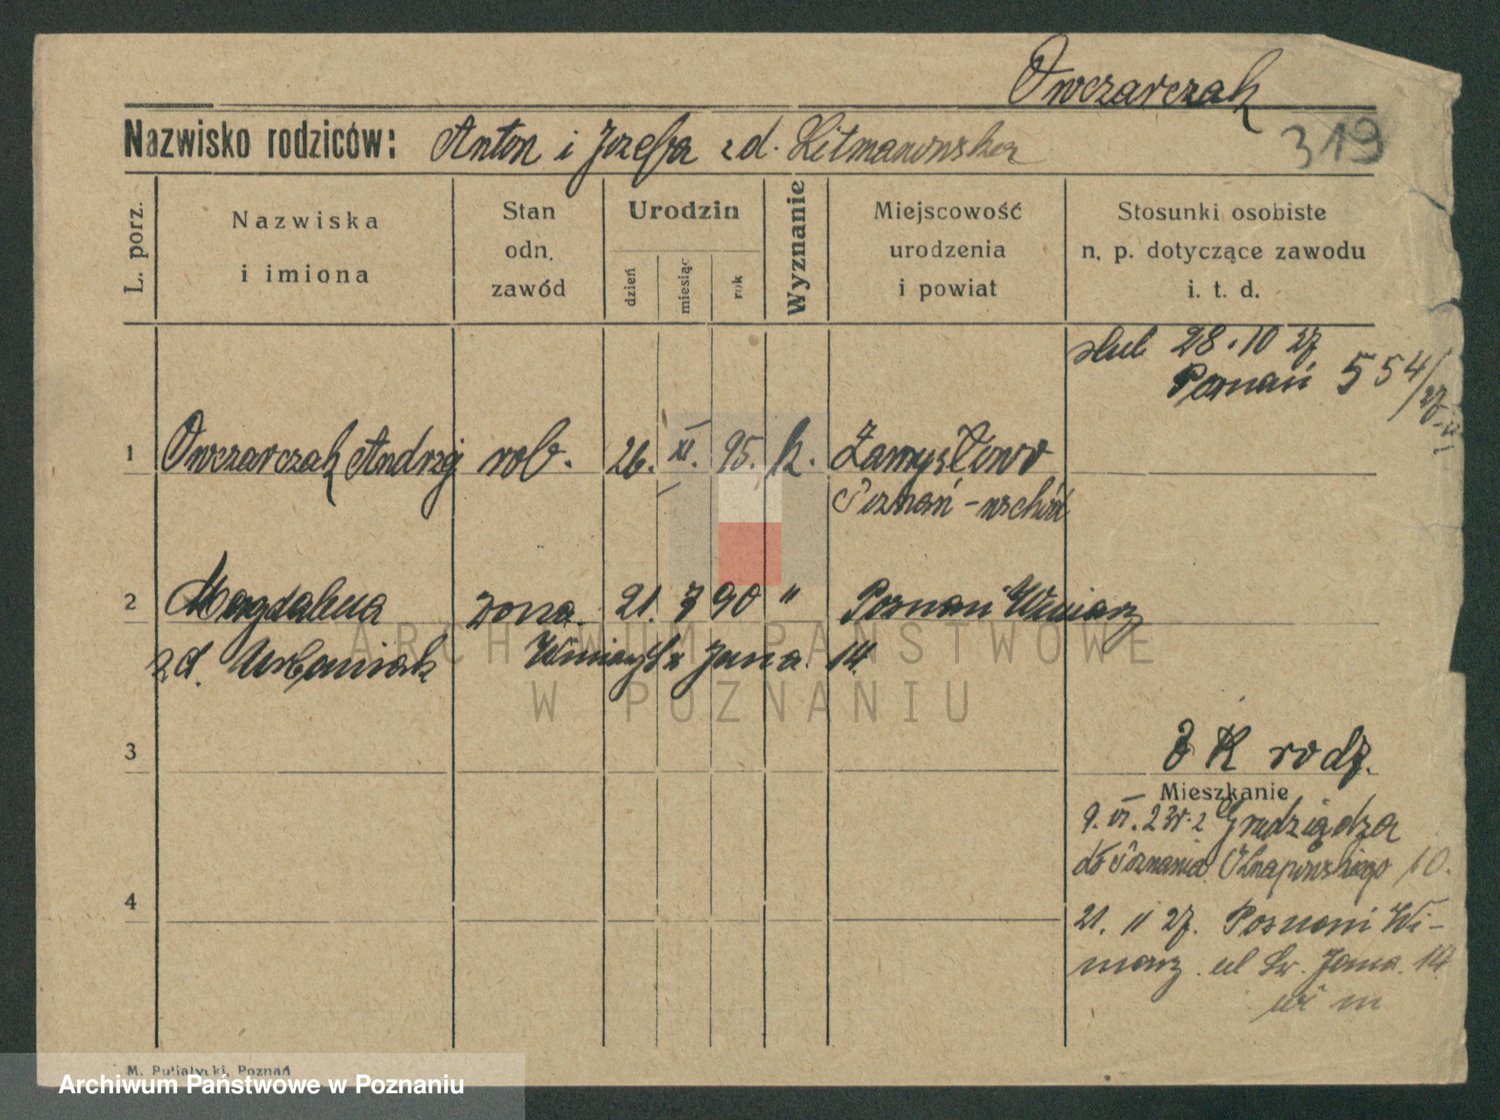 Owczarczak
Nazwisko rodziców: Anton i Jozefa zd. Litmanowska
319
L. porz.
Nazwiska i imiona
Stan odn. zawód
Urodzin
dzień
miesiąc
rok
Wyznanie
Miejscowość urodzenia i powiat
Stosunki osobiste n. p. dotyczące zawodu i. t. d.
slub 28.10 27
Poznań 554/27
1 Owczarczak Andrzej rob. 26. XI. 95. k. Zamysłowo
Poznań-wschód
2 Magdalena żona. 21. 7 90 " Poznan Winiary
zd. Urbaniak Winiary Św Jana. 14.
3
K rodz.
Mieszkanie
9. VI. 23 z Grudziądza
do Poznania 10.
4
21. 11 27. Poznan Wi-
niary ul Św. Jana. 14
M. Putiatycki, Poznań
ARCHIWUM PAŃSTWOWE
W POZNANIU
Archiwum Państwowe w Poznaniu